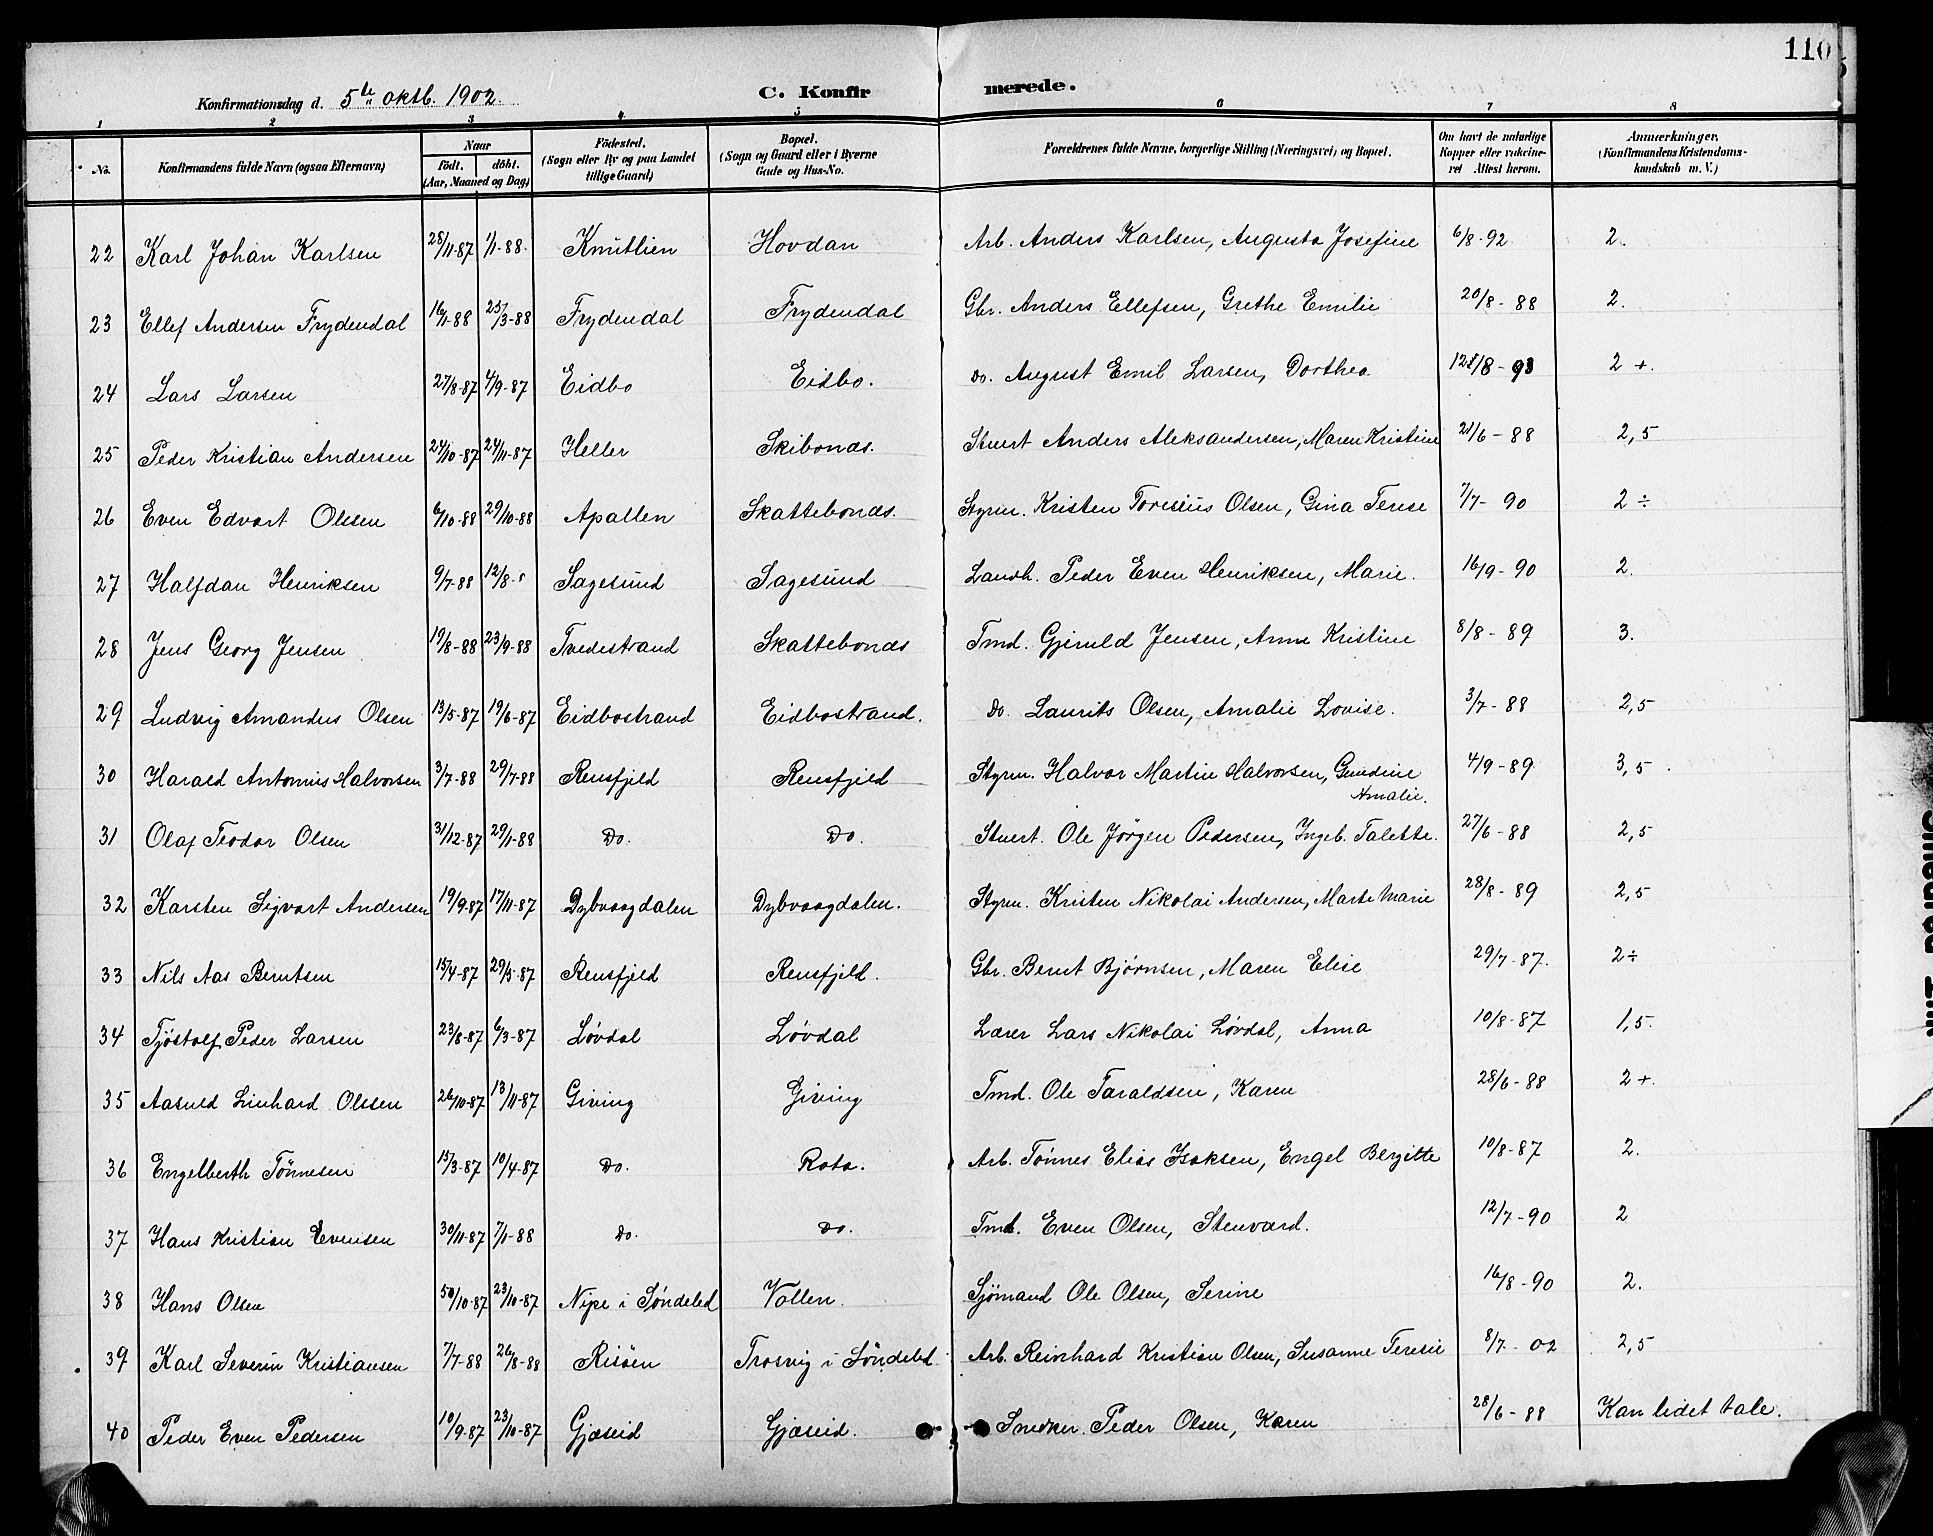 110
Konfirmationsdag d. 5te oktb. 1902. C. Konfirmerede.
1 2 3 4 5 6 7 8
No. Konfirmandens fulde Navn (ogsaa Efternavn) Naar født. døbt. (Aar, Maaned og Dag) Fødested. (Sogn eller By og paa Landet tillige Gaard) Bopæl. (Sogn og Gaard eller i Byerne Gade og Hus-No. Forældrenes fulde Navne, borgerlige Stilling (Næringsvei) og Bopæl. Om havt de naturlige Kopper eller vakcineret Attest herom. Anmærkninger. (Konfirmandens Kristendomskundskab m. V.)
22 Karl Johan Karlsen 28/11-87 1/1-88. Knutlien Hovdan Arb. Anders Karlsen, Augusta Josefine 6/8-92 2.
23 Ellef Andersen Frydendal 16/1-88 25/3-88 Frydendal Frydendal Gbr. Anders Ellefsen, Grethe Emilie 20/8-88 2.
24 Lars Larsen 27/8-87 4/9-87 Eidbo Eidbo. Do. August Emil Larsen, Dorthea 2+.
25 Peder Kristian Andersen 24/10-87 24/11-87 Heller Skibonæs. Stuert Anders Aleksandersen, Maren Kristine 21/6-88 2,5
26 Even Edvart Olsen 6/10-88 29/10-88 Apallen Skattebonæs. Styrm. Kristen Toresius Olsen, Gina Terese 7/7-90 2÷
27 Halfdan Henriksen 9/7-88 12/8- Sagesund Sagesund Landh. Peder Even Henriksen, Marie. 16/9-90 2.
28 Jens Georg Jensen 19/8-88 23/9-88 Tvedestrand Skattebonæs Tmd. Gjeruld Jensen, Anne Kristine 8/8-89 3.
29 Ludvig Amandus Olsen 13/5-87 19/6-87 Eidbostrand Eidbostrand. Do. Laurits Olsen, Amalie Lovise. 3/7-88 2,5
30 Harald Antonius Halvorsen 3/7-88 29/7-88 Rensfjeld Rensfjeld Styrm. Halvor Martin Halvorsen, Gundine Amalie. 4/9-89 3,5
31 Olaf Teodor Olsen 31/12-87 29/1-88 Do. Do. Stuert. Ole Jørgen Pedersen, Ingeb. Talette. 27/6-88 2,5
32 Karsten Sigvart Andersen 19/9-87 17/11-87 Dybvaagdalen Dybvaagdalen. Styrm. Kristen Nikolai Andersen, Marte Marie 28/8-89 2,5
33 Nils Aas Berntsen 15/4-87 29/5-87 Rensfjeld Rensfjeld. Gbr. Bernt Bjørnsen, Maren Elise 29/7-87. 2÷
34 Tjøstolf Peder Larsen 23/8-87 6/3-87 Løvdal Løvdal Lærer Lars Nikolai Løvdal, Anna 10/8-87 1,5.
35 Aasuld Linhard Olsen 26/10-87 13/11-87 Giving Giving Tmd. Ole Taraldsen, Karen 28/6-88 2+.
36 Engelberth Tönnesen 15/3-87 10/4-87 Do. Rota. Arb. Tönnes Elias Isaksen, Engel Bergitte 10/8-87 2.
37 Hans Kristian Evensen 30/11-87 7/1-88 Do. Do. Tmd. Even Olsen, Stenvard. 12/7-90 2
38 Hans Olsen 23/10-87 Nipe i Søndeled Vollen. Sjömand Ole Olsen, Serine 16/8-90 2.
39 Karl Severin Kristiansen 7/7-88 26/8-88 Risöen Trosvig i Søndeled Arb. Reinhard Kristian Olsen, Susanne Teresie 8/7-02 2,5
40 Peder Even Pedersen 10/9-87 23/10-87 Gjæseid Gjæseid. Snedker. Peder Olsen, Karen 28/6-88 Kan lidet tale.